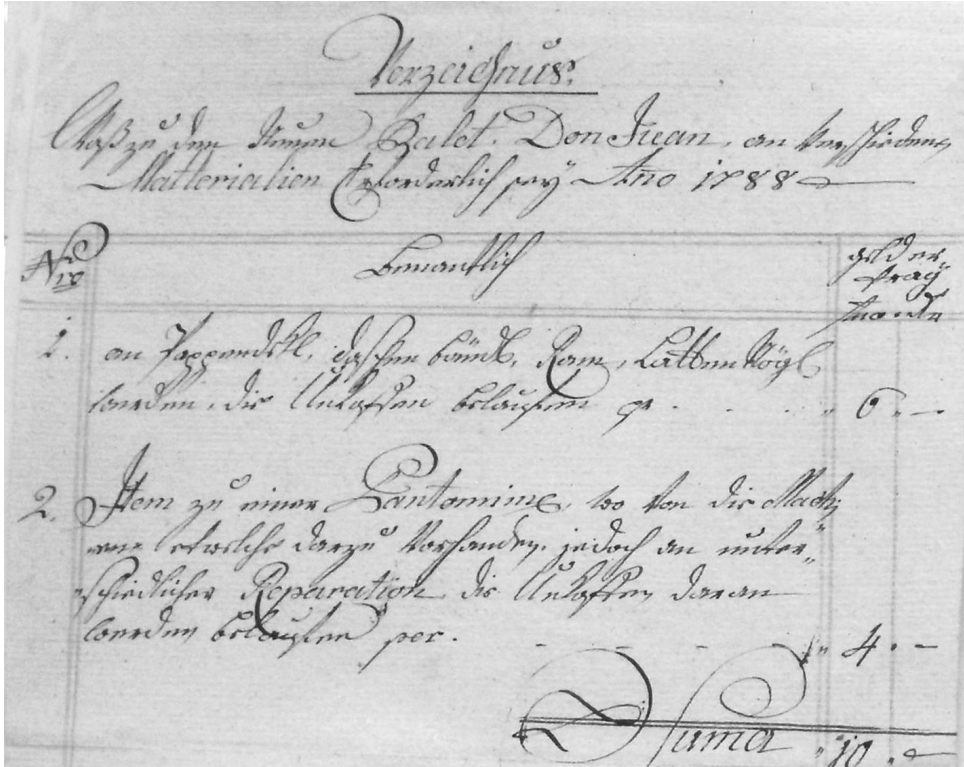 Verzeichnus.
Waß zu dem Neuen Balet. Don Juan, an Verschiedene
Matterialien Erforderlich sey Ano 1788
Nro Benantlich geld er-
trag
1. an Pappendekl, Ram, Latten Nögl
werden, die Unkosten belaufen 6.–
2. Item zu einer Pantomine, wo von die Machi
etwelche darzu Vorhanden, jedoch an unter-
schiedlicher Reparation die Unkosten daran
werden belaufen per. 4.–
Suma 10.–